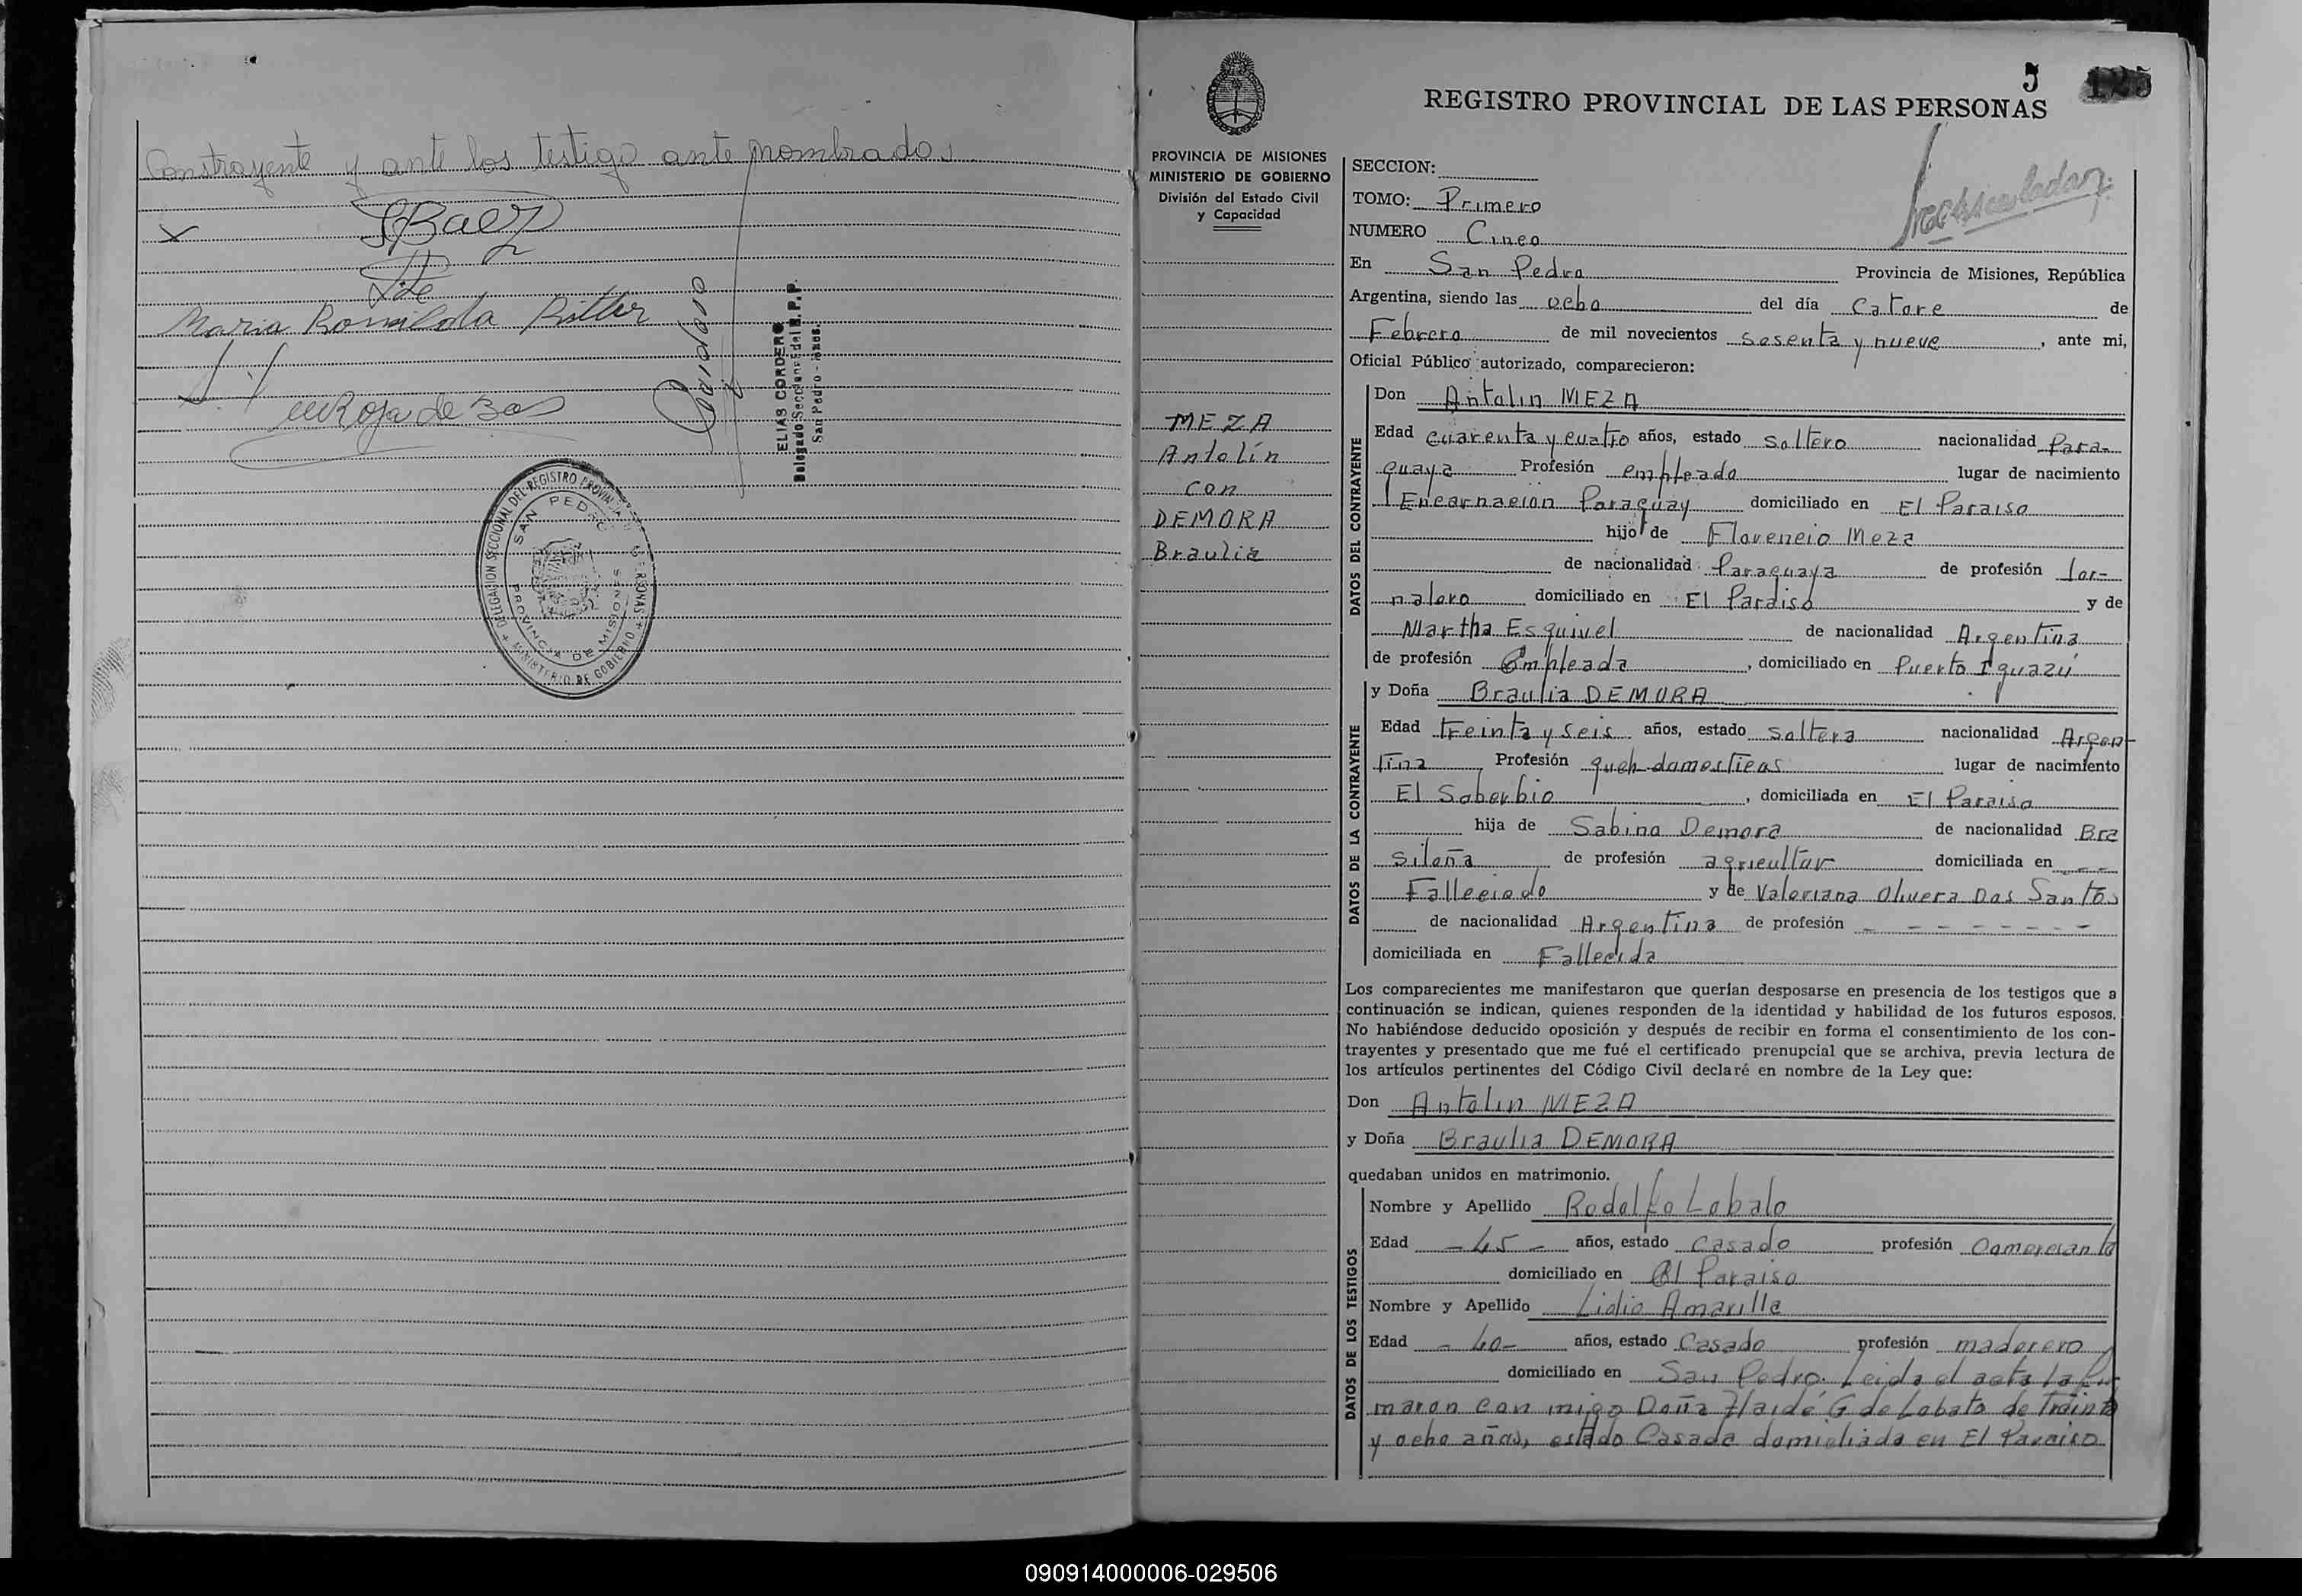 Contrayente y ante los testigo ante nombrados
x SBaez
Maria Romilda Ritter
ELIAS CORDERO
Delegado Seccional del R. P. P.
San Pedro - Mnes.
DELEGACION SECCIONAL DEL REGISTRO PROVINCIAL DE LAS PERSONAS
MINISTERIO DE GOBIERNO
SAN PEDRO
PROVINCIA DE MISIONES
5 125
REGISTRO PROVINCIAL DE LAS PERSONAS
PROVINCIA DE MISIONES
MINISTERIO DE GOBIERNO
División del Estado Civil
y Capacidad
MEZA
Antolín
con
DEMORA
Braulia
SECCION:
TOMO: Primero
NUMERO Cinco
En San Pedro Provincia de Misiones, República
Argentina, siendo las ocho del día Catorce de
Febrero de mil novecientos sesenta y nueve, ante mi,
Oficial Público autorizado, comparecieron:
DATOS DEL CONTRAYENTE
Don Antolin MEZA
Edad cuarenta y cuatro años, estado soltero nacionalidad Para-
guaya Profesión empleado lugar de nacimiento
Encarnacion Paraguay domiciliado en El Paraiso
hijo de Florencio Meza
de nacionalidad Paraguaya de profesión Jor-
nalero domiciliado en El Paraiso y de
Martha Esquivel de nacionalidad Argentina
de profesión Empleada, domiciliado en Puerto Iguazú
DATOS DE LA CONTRAYENTE
y Doña Braulia DEMORA
Edad treinta y seis años, estado soltera nacionalidad Argen-
tina Profesión queh domesticos lugar de nacimiento
El Soberbio, domiciliada en El Paraiso
hija de Sabino Demora de nacionalidad Bra
sileña de profesión agricultor domiciliada en ---
Fallecido y de Valeriana Olivera Dos Santos
de nacionalidad Argentina de profesión - - - - - - -
domiciliada en Fallecida
Los comparecientes me manifestaron que querían desposarse en presencia de los testigos que a
continuación se indican, quienes responden de la identidad y habilidad de los futuros esposos.
No habiéndose deducido oposición y después de recibir en forma el consentimiento de los con-
trayentes y presentado que me fué el certificado prenupcial que se archiva, previa lectura de
los artículos pertinentes del Código Civil declaré en nombre de la Ley que:
Don Antolin MEZA
y Doña Braulia DEMORA
quedaban unidos en matrimonio.
DATOS DE LOS TESTIGOS
Nombre y Apellido Rodolfo Lobato
Edad - 45 - años, estado Casado profesión Comerciante
domiciliado en El Paraiso
Nombre y Apellido Lidio Amarilla
Edad - 40 - años, estado Casado profesión maderero
domiciliado en San Pedro. Leida el acta la fir
maron con migo Doña Haidé G de Lobato de Treinta
y ocho años, estado Casada domiciliada en El Paraiso
090914000006-029506